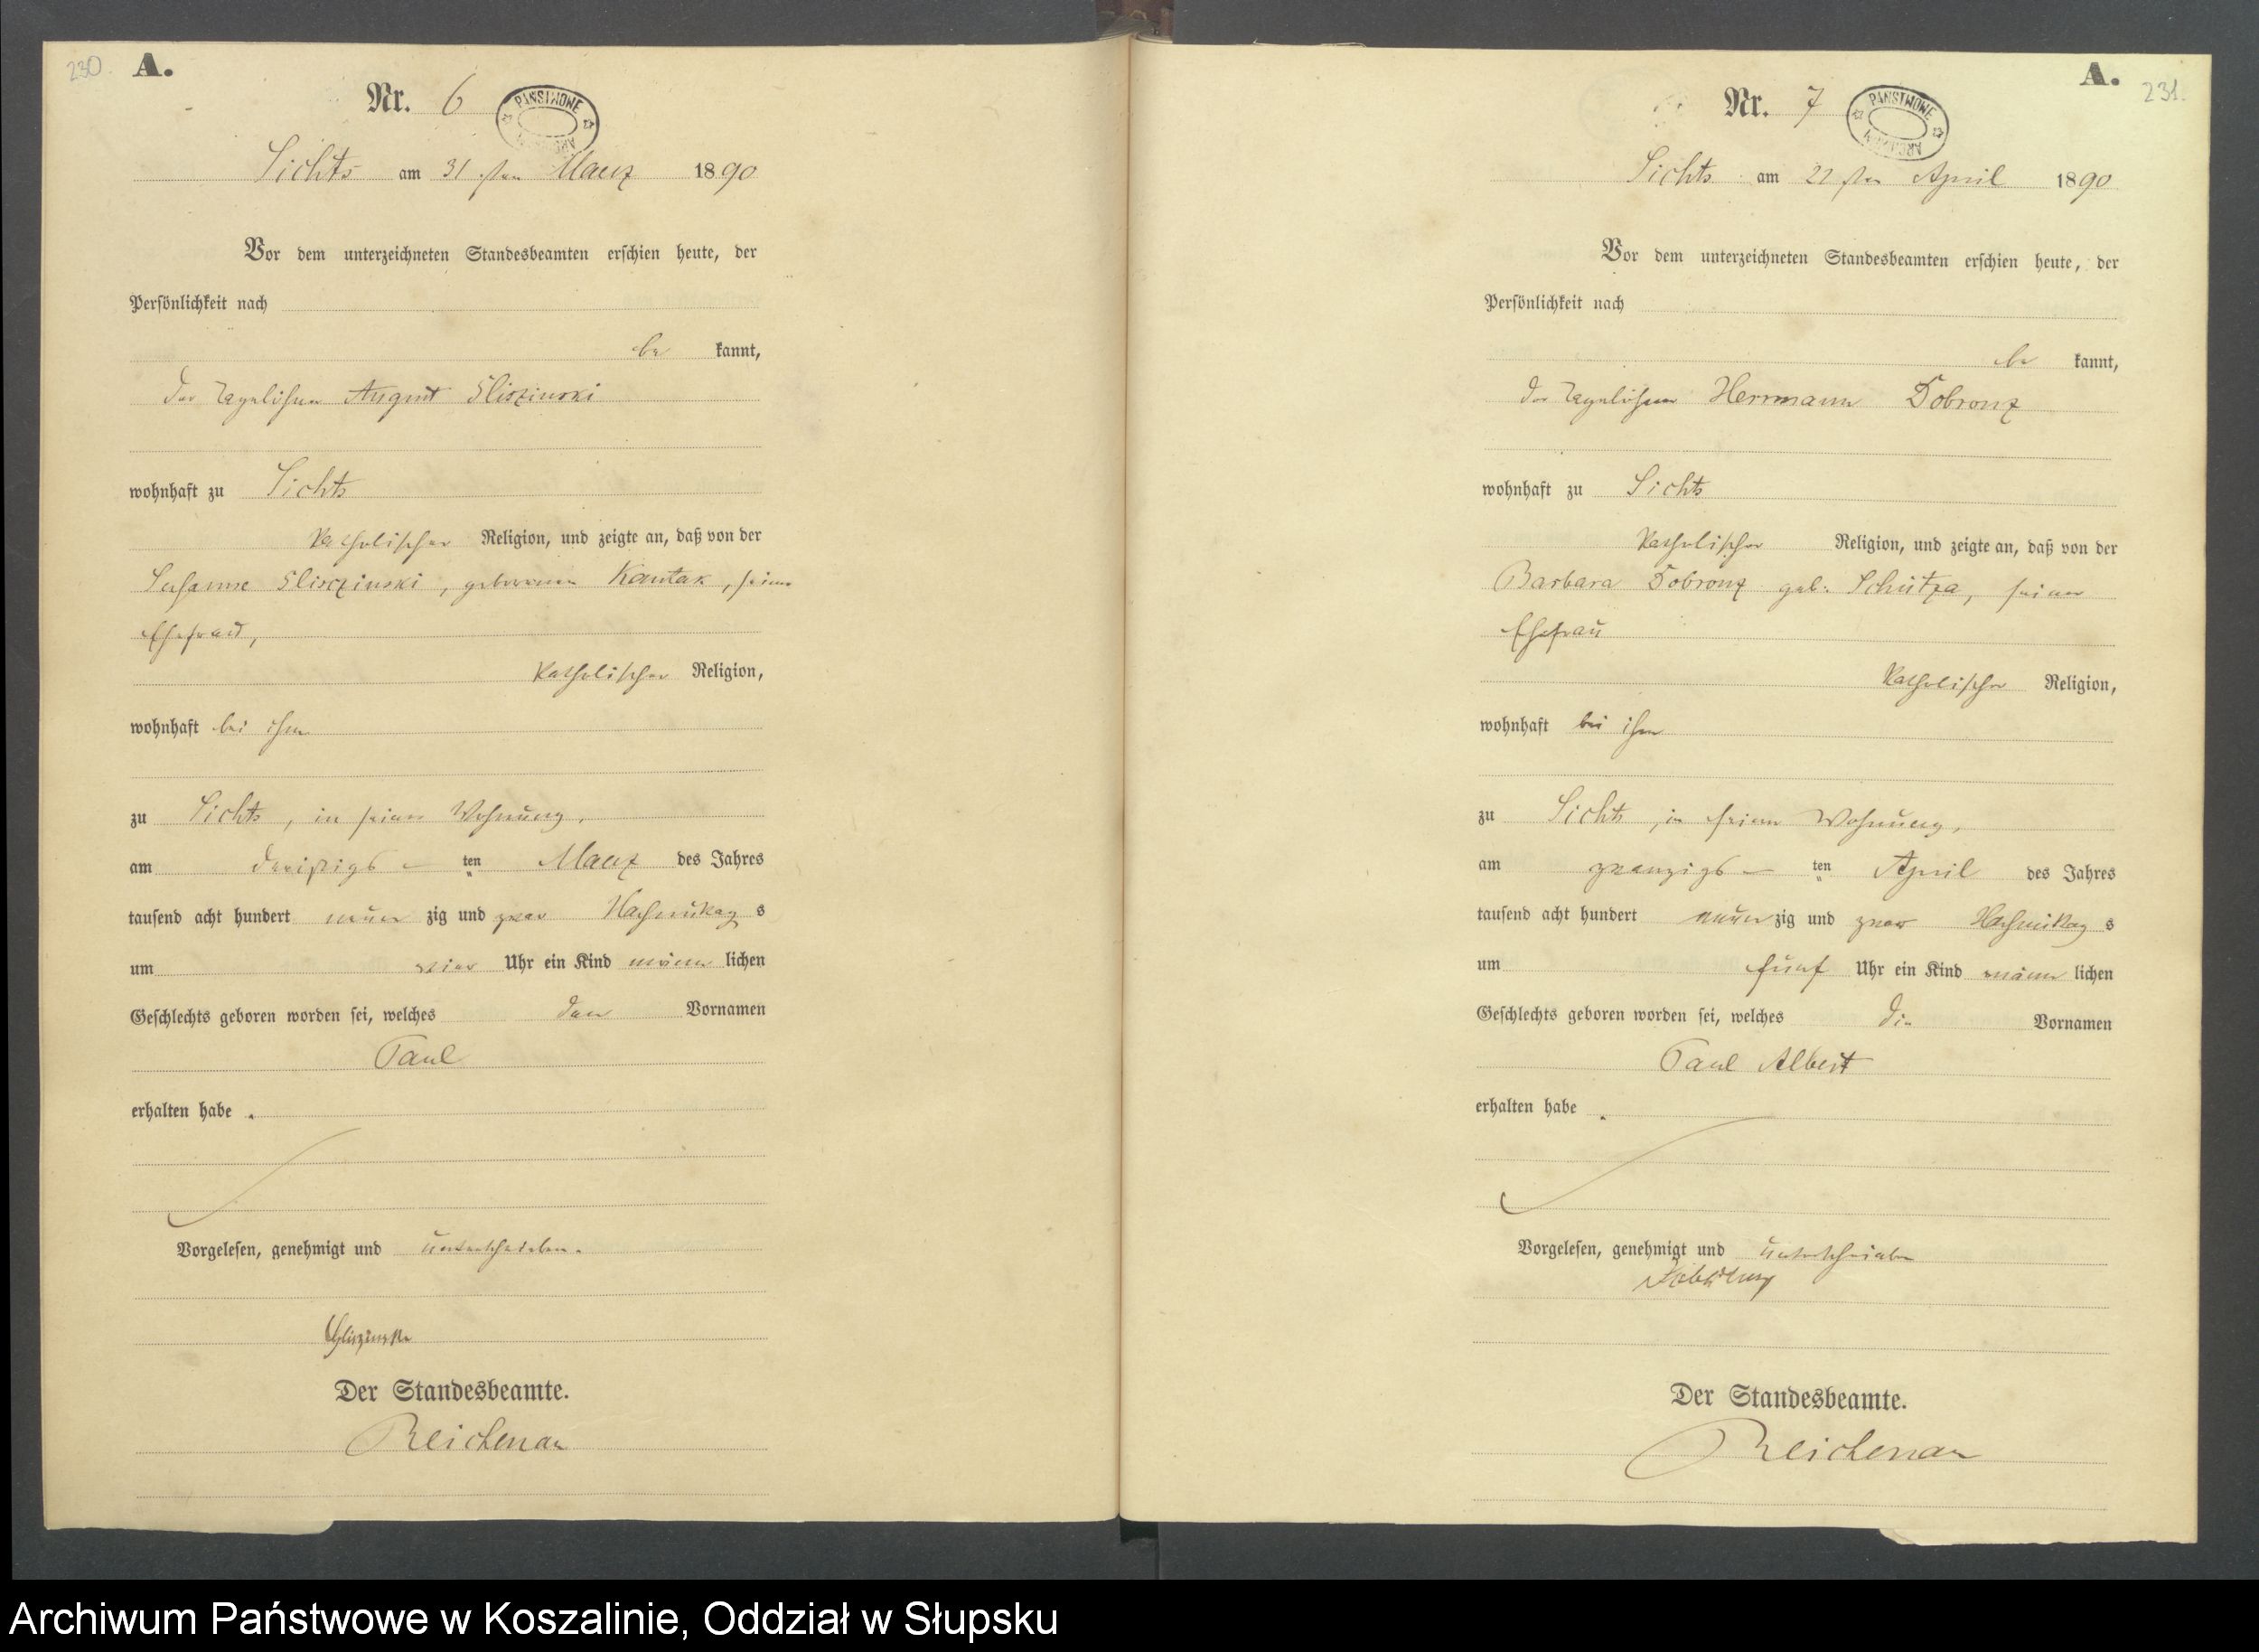 230. A.
Nr. 6
PAŃSTWOWE
Lichts am 31 sten Maerz 1890
Vor dem unterzeichneten Standesbeamten erschien heute, der
Persönlichkeit nach
be kannt,
der Tagelöhner August Gliszinski
wohnhaft zu Lichts
Katholischer Religion, und zeigte an, daß von der
Susanne Gliszinski, geborenen Kantak, seiner
Ehefrau,
Katholischer Religion,
wohnhaft bei ihm
zu Lichts, in seiner Wohnung,
am dreißigs ten Maerz des Jahres
tausend acht hundert neun zig und zwar Nachmittag s
um vier Uhr ein Kind männ lichen
Geschlechts geboren worden sei, welches den Vornamen
Paul
erhalten habe.
Vorgelesen, genehmigt und unterschrieben.
Der Standesbeamte.
Reichenau
A. 231.
Nr. 7
PAŃSTWOWE
Lichts am 22 sten April 1890
Vor dem unterzeichneten Standesbeamten erschien heute, der
Persönlichkeit nach
be kannt,
der Tagelöhner Herrmann Dobronz
wohnhaft zu Lichts
Katholischer Religion, und zeigte an, daß von der
Barbara Dobronz geb: Schütza, seiner
Ehefrau
Katholischer Religion,
wohnhaft bei ihm
zu Lichts, in seiner Wohnung,
am zwanzigs ten April des Jahres
tausend acht hundert neun zig und zwar Nachmittag s
um fünf Uhr ein Kind männ lichen
Geschlechts geboren worden sei, welches die Vornamen
Paul Albert
erhalten habe.
Vorgelesen, genehmigt und unterschrieben
Der Standesbeamte.
Reichenau
Archiwum Państwowe w Koszalinie, Oddział w Słupsku